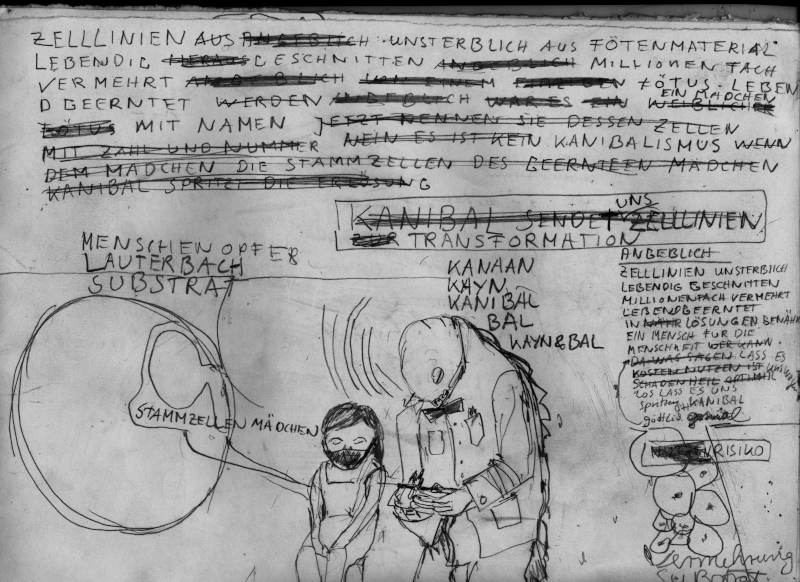 ZELLLINIEN AUS ANGEBLICH UNSTERBLICH AUS FÖTENMATERIAL
LEBENDIG GESCHNITTEN ANGEBLICH MILLIONENFACH
VERMEHRT ANGEBLICH VON EINEM FÖTUS. LEBEN
DGEERNTET WERDEN ANGEBLICH WAR ES EIN WEIBLICHER
EIN MÄDCHEN
FÖTUS MIT NAMEN JETZT NENNEN SIE DESSEN ZELLEN
MIT ZAHL UND NUMMER NEIN ES IST KEIN KANIBALISMUS WENN
DEM MÄDCHEN DIE STAMMZELLEN DES GEERNTEEN MÄDCHEN
KANIBAL SPRITZT DIE ERLÖSUNG
UNS
KANIBAL SENDET ZELLLINIEN
ZUR TRANSFORMATION
MENSCHENOPFER
LAUTERBACH
SUBSTRAT
KANAAN
KAYN
KANIBAL
BAL
KAYN&BAL
STAMMZELLEN MÄDCHEN
ANGEBLICH
ZELLLINIEN UNSTERBLICH
LEBENDIG GESCHNITTEN
MILLIONENFACH VERMEHRT
LEBENDGEERNTET
IN NÄHR LÖSUNGEN BENÄHR
EIN MENSCH FÜR DIE
MENSCHHEIT WER KANN
DA WAS SAGEN LASS ES
KOSTEN NUTZEN IST
SCHADEN HEIL OPTIMAL
LOS LASS ES UNS
KANIBAL
göttlich genial
RISIKO
Vermehrung
Substrat